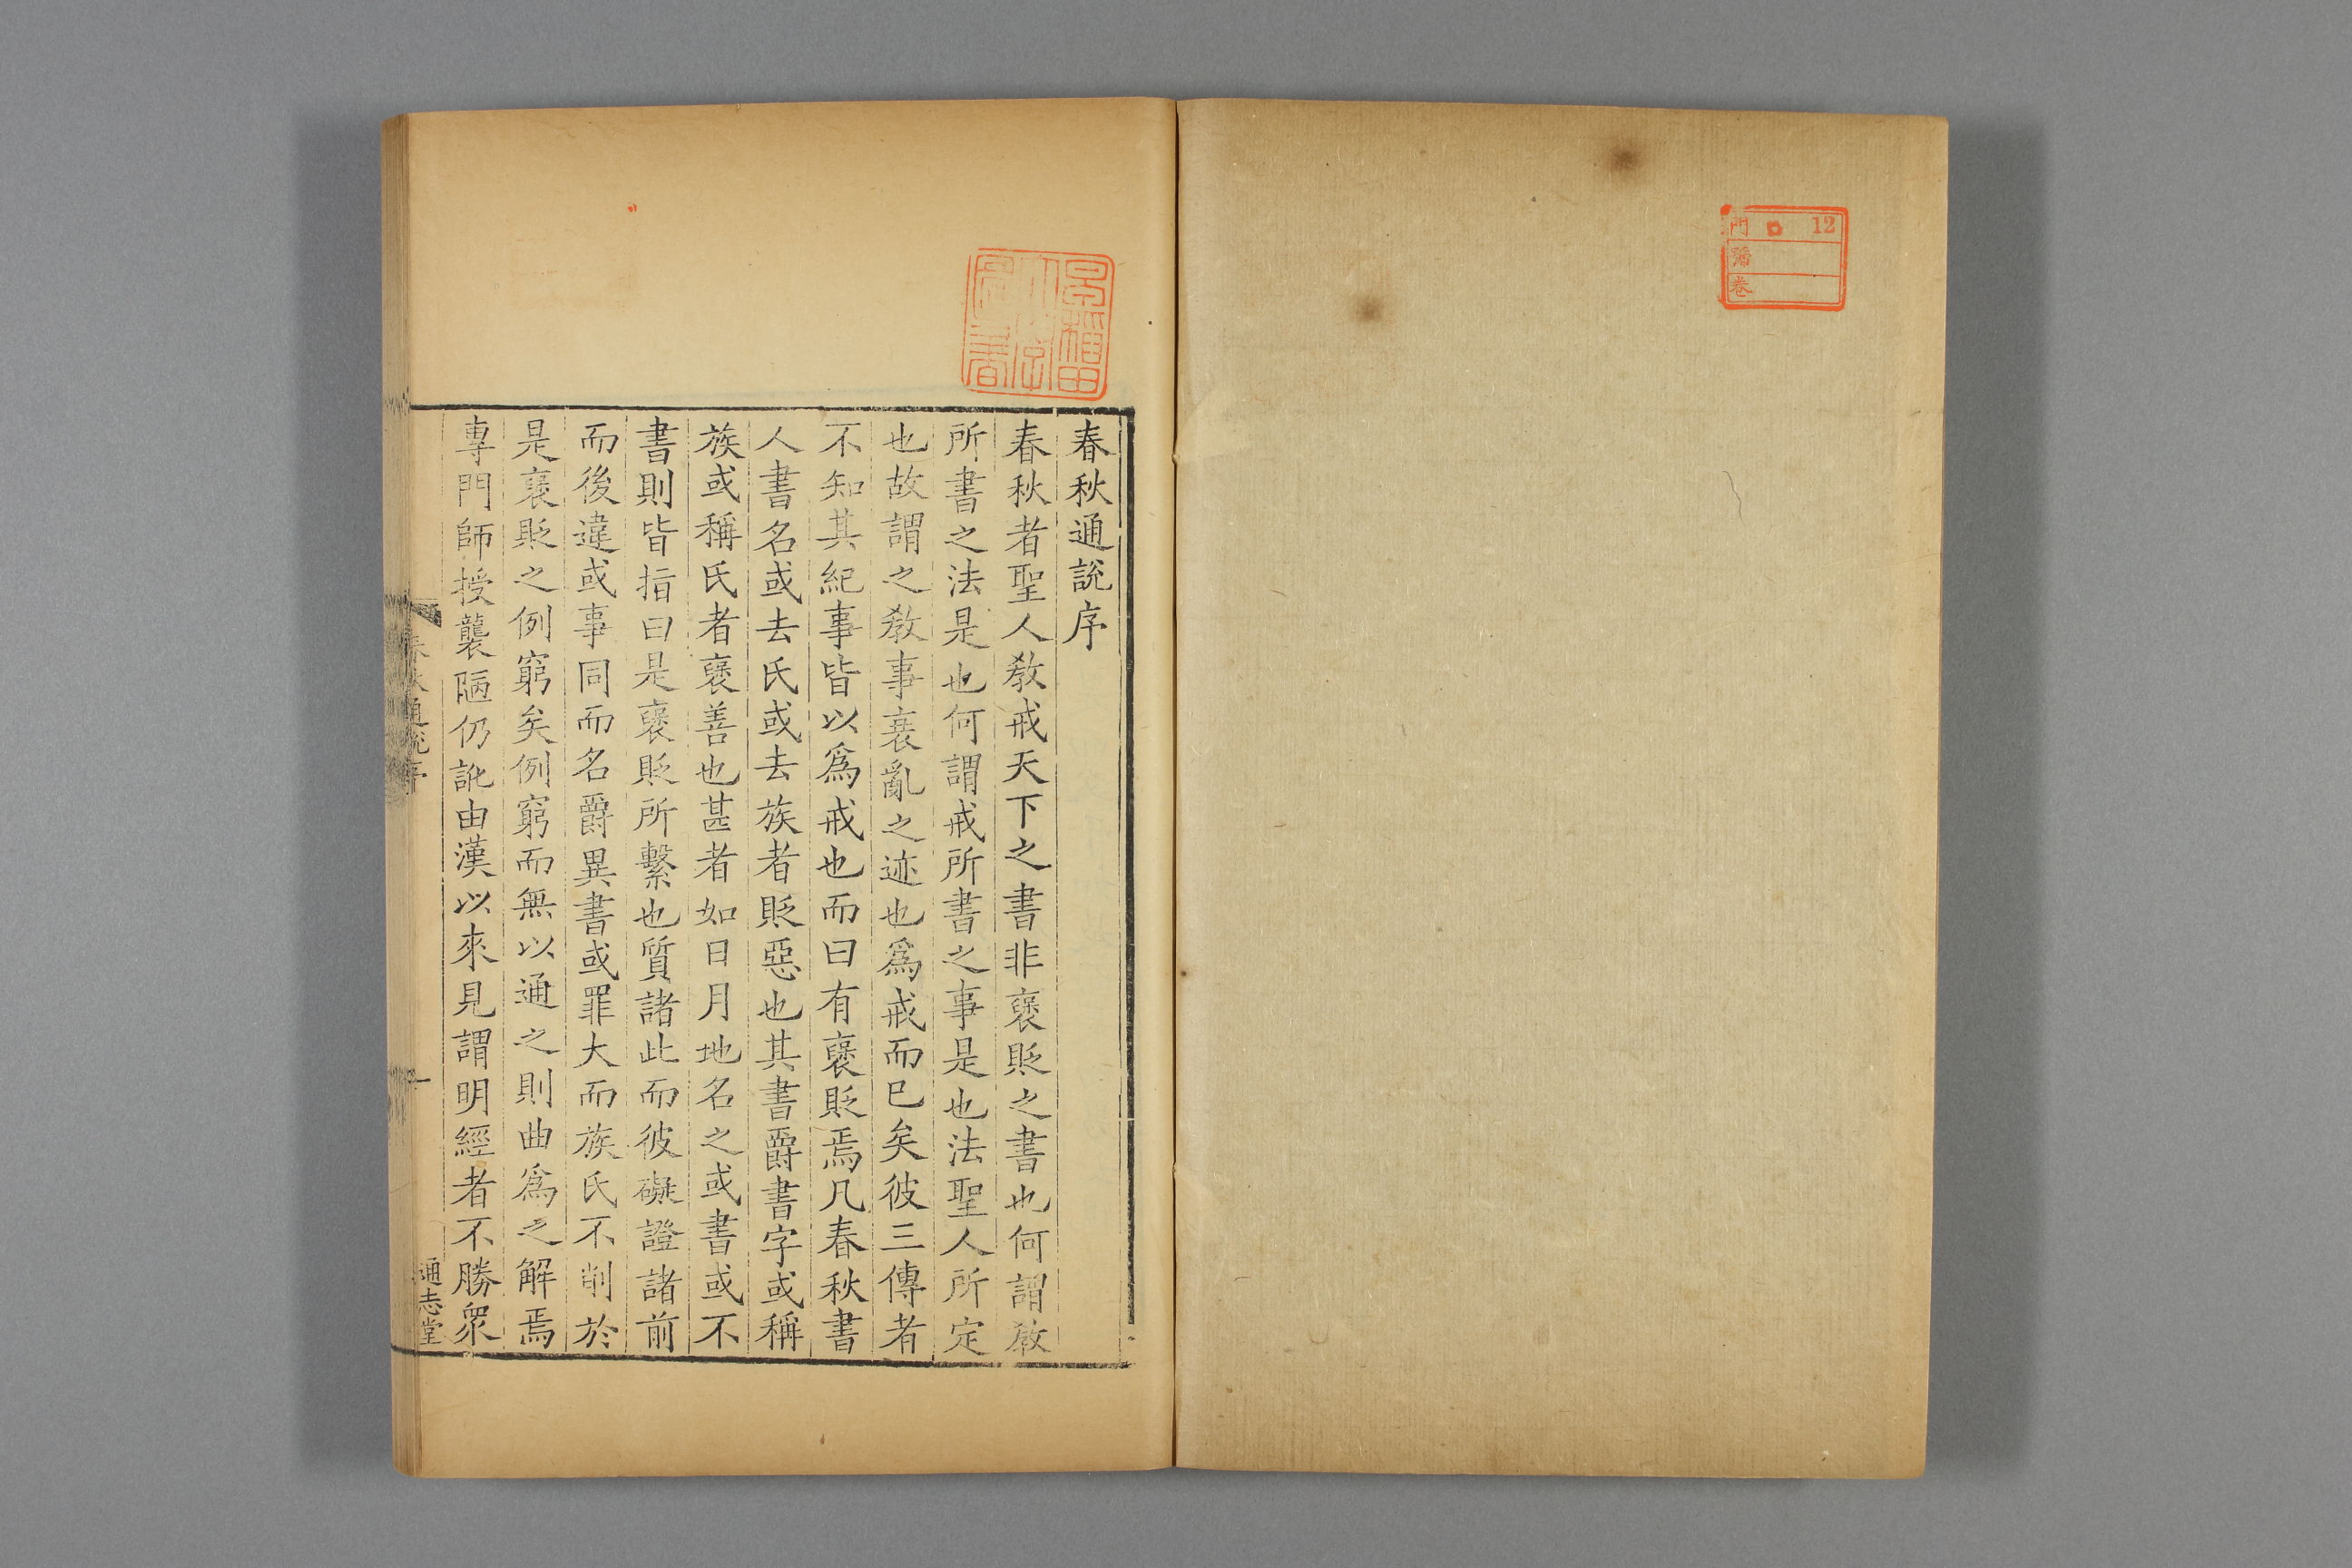 門 12
號
卷
春秋通說序
春秋者聖人敎戒天下之書非襃貶之書也何謂敎
所書之法是也何謂戒所書之事是也法聖人所定
也故謂之敎事衰亂之迹也爲戒而巳矣彼三傳者
不知其紀事皆以爲戒也而曰有襃貶焉凡春秋書
人書名或去氏或去族者貶惡也其書爵書字或稱
族或稱氏者襃善也甚者如日月地名之或書或不
書則皆指曰是襃貶所繫也質諸此而彼礙證諸前
而後違或事同而名爵異書或罪大而族氏不削於
是襃貶之例窮矣例窮而無以通之則曲爲之解焉
專門師授襲陋仍訛由漢以來見謂明經者不勝衆
春秋通說序
一
通志堂